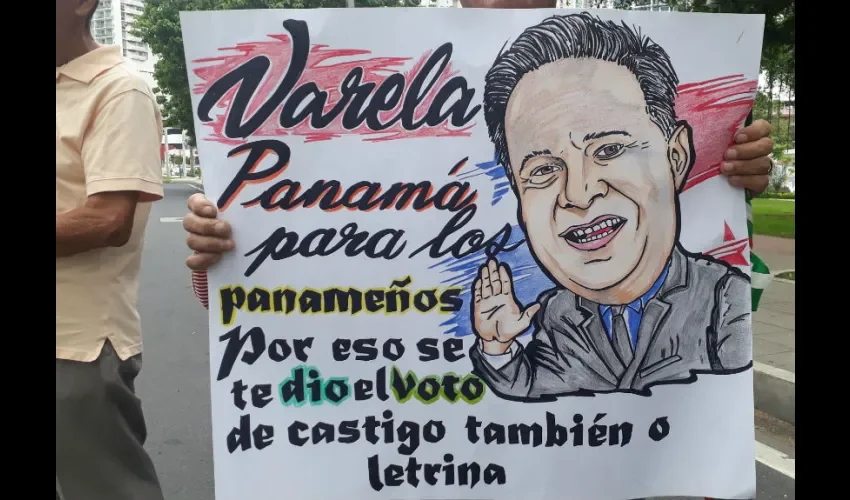 Varela
Panamá
para los
panameños
Por eso se
te dio el voto
de castigo también o
letrina